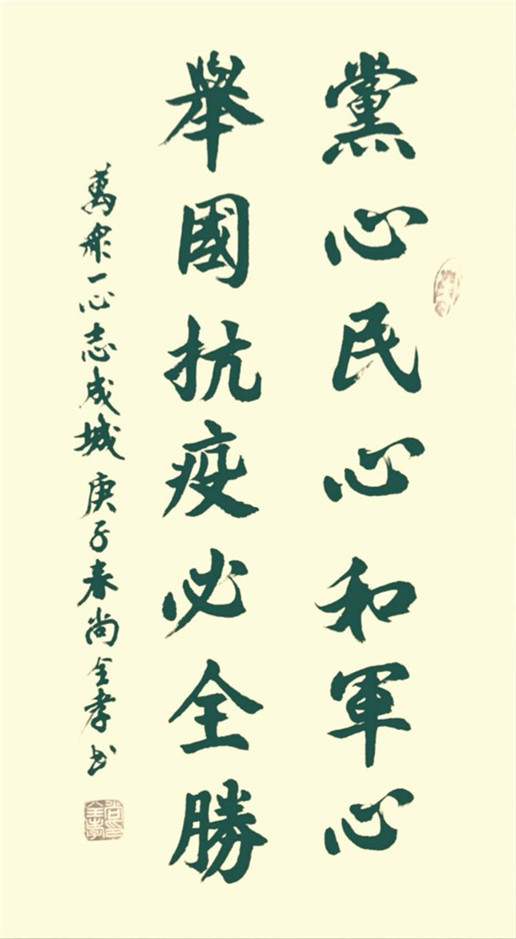 黨心民心和軍心
舉國抗疫必全勝
萬衆一心志成城 庚子春尚全孝书